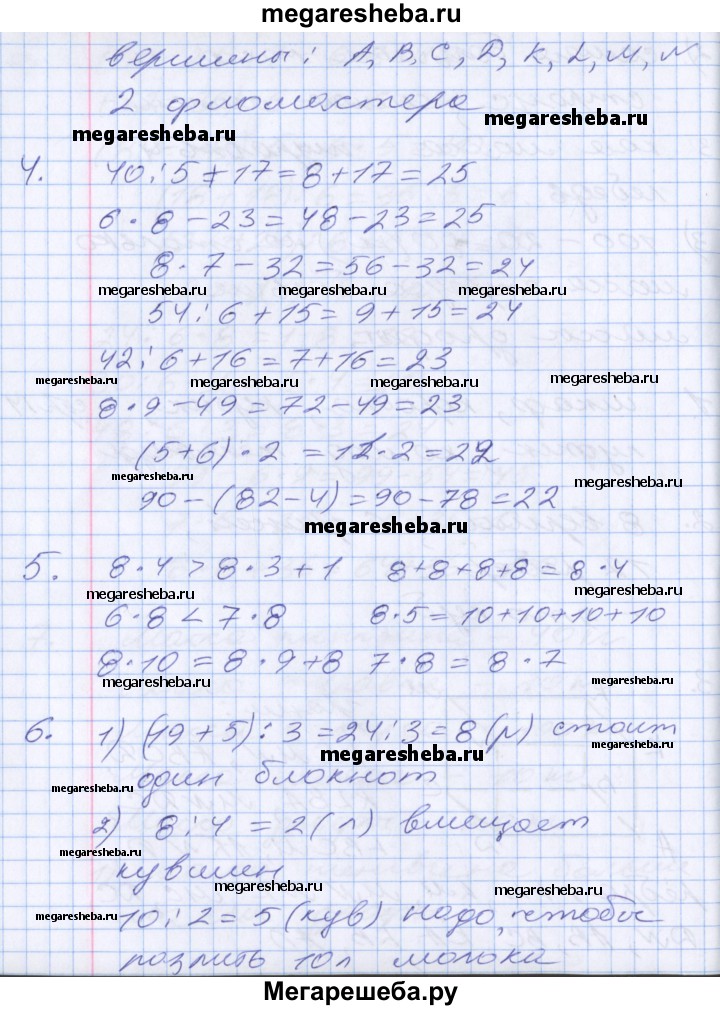 megaresheba.ru
вершины: A, B, C, D, K, L, M, N
2 фломастера
megaresheba.ru megaresheba.ru
4. 40:5+17=8+17=25
6·8-23=48-23=25
8·7-32=56-32=24
megaresheba.ru megaresheba.ru megaresheba.ru
54:6+15=9+15=24
42:6+16=7+16=23
megaresheba.ru megaresheba.ru megaresheba.ru megaresheba.ru
8·9-49=72-49=23
(5+6)·2=11·2=22
megaresheba.ru megaresheba.ru
90-(82-4)=90-78=22
megaresheba.ru megaresheba.ru
5. 8·4>8·3+1 8+8+8+8=8·4
megaresheba.ru megaresheba.ru
6·8<7·8 8·5=10+10+10+10
8·10=8·9+8 7·8=8·7
megaresheba.ru megaresheba.ru
6. 1) (19+5):3=24:3=8(р) стоит
megaresheba.ru megaresheba.ru
один блокнот
megaresheba.ru
2) 8:4=2(л) вмещает
megaresheba.ru
кувшин
megaresheba.ru megaresheba.ru
megaresheba.ru
10:2=5(кув) надо, чтобы
разлить 10л молока
Мегарешеба.ру